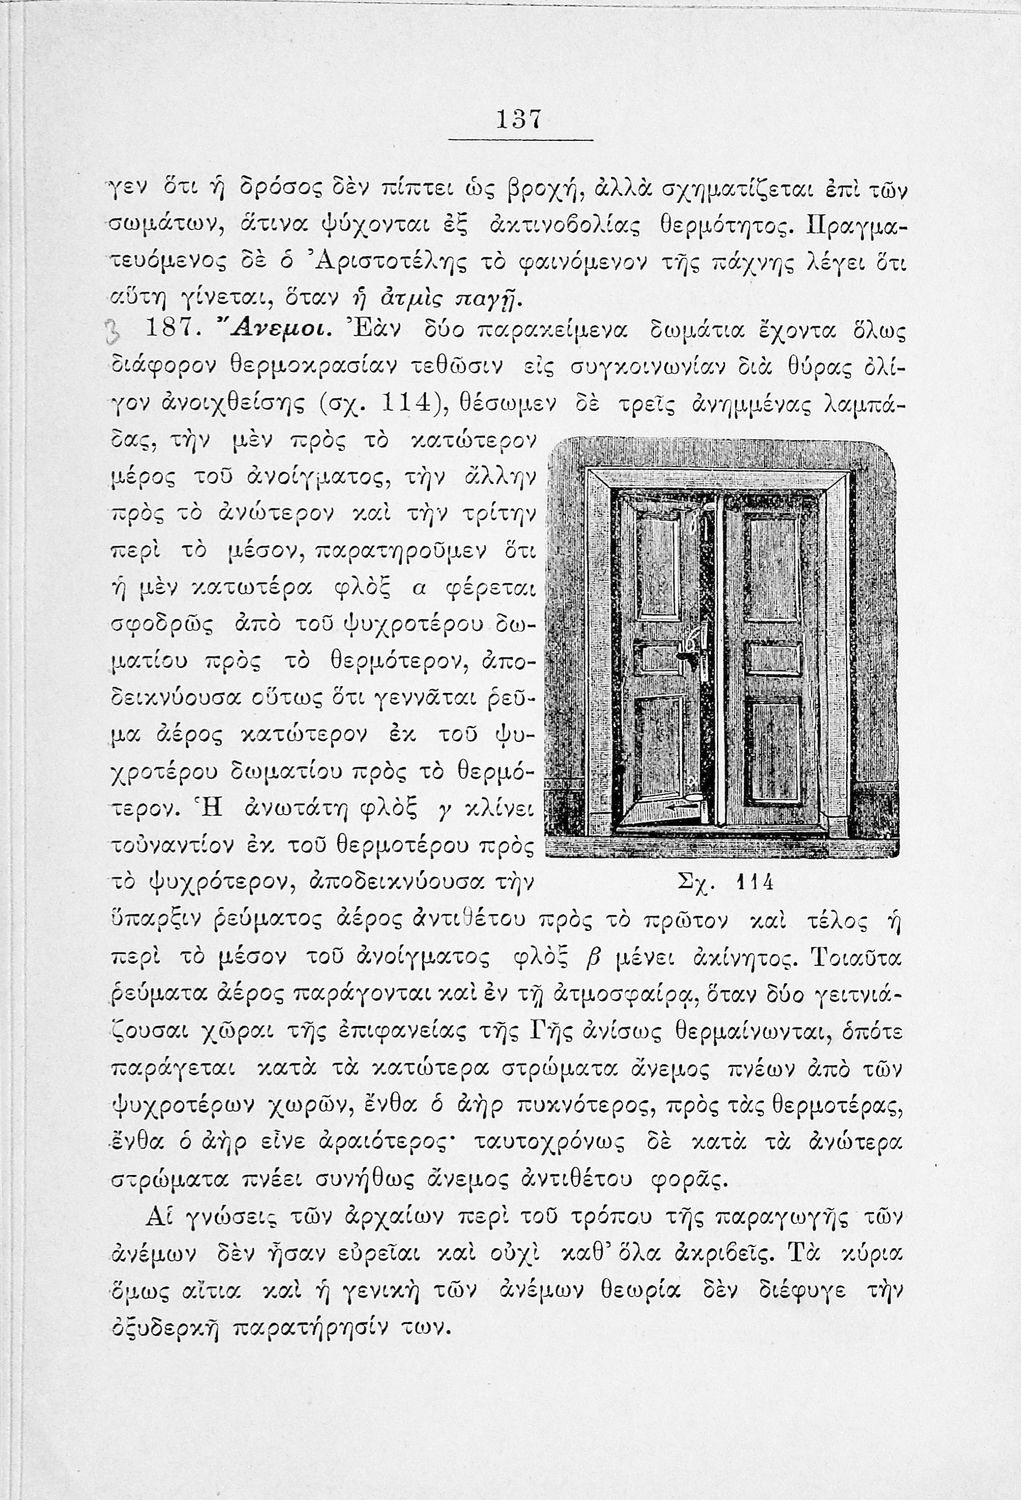 137
γεν ὅτι ἡ δρόσος δὲν πίπτει ὡς βροχή, ἀλλὰ σχηματίζεται ἐπὶ τῶν
σωμάτων, ἅτινα ψύχονται ἐξ ἀκτινοβολίας θερμότητος. Πραγμα-
τευόμενος δὲ ὁ Ἀριστοτέλης τὸ φαινόμενον τῆς πάχνης λέγει ὅτι
αὕτη γίνεται, ὅταν ἡ ἀτμὶς παγῇ.
3 187. Ἄνεμοι. Ἐὰν δύο παρακείμενα δωμάτια ἔχοντα ὅλως
διάφορον θερμοκρασίαν τεθῶσιν εἰς συγκοινωνίαν διὰ θύρας ὀλί-
γον ἀνοιχθείσης (σχ. 114), θέσωμεν δὲ τρεῖς ἀνημμένας λαμπά-
δας, τὴν μὲν πρὸς τὸ κατώτερον
μέρος τοῦ ἀνοίγματος, τὴν ἄλλην
πρὸς τὸ ἀνώτερον καὶ τὴν τρίτην
περὶ τὸ μέσον, παρατηροῦμεν ὅτι
ἡ μὲν κατωτέρα φλὸξ α φέρεται
σφοδρῶς ἀπὸ τοῦ ψυχροτέρου δω-
ματίου πρὸς τὸ θερμότερον, ἀπο-
δεικνύουσα οὕτως ὅτι γεννᾶται ῥεῦ-
μα ἀέρος κατώτερον ἐκ τοῦ ψυ-
χροτέρου δωματίου πρὸς τὸ θερμό-
τερον. Ἡ ἀνωτάτη φλὸξ γ κλίνει
τοὐναντίον ἐκ τοῦ θερμοτέρου πρὸς
τὸ ψυχρότερον, ἀποδεικνύουσα τὴν
Σχ. 114
ὕπαρξιν ῥεύματος ἀέρος ἀντιθέτου πρὸς τὸ πρῶτον καὶ τέλος ἡ
περὶ τὸ μέσον τοῦ ἀνοίγματος φλὸξ β μένει ἀκίνητος. Τοιαῦτα
ῥεύματα ἀέρος παράγονται καὶ ἐν τῇ ἀτμοσφαίρᾳ, ὅταν δύο γειτνιά-
ζουσαι χῶραι τῆς ἐπιφανείας τῆς Γῆς ἀνίσως θερμαίνωνται, ὁπότε
παράγεται κατὰ τὰ κατώτερα στρώματα ἄνεμος πνέων ἀπὸ τῶν
ψυχροτέρων χωρῶν, ἔνθα ὁ ἀὴρ πυκνότερος, πρὸς τὰς θερμοτέρας,
ἔνθα ὁ ἀὴρ εἶνε ἀραιότερος· ταυτοχρόνως δὲ κατὰ τὰ ἀνώτερα
στρώματα πνέει συνήθως ἄνεμος ἀντιθέτου φορᾶς.
Αἱ γνώσεις τῶν ἀρχαίων περὶ τοῦ τρόπου τῆς παραγωγῆς τῶν
ἀνέμων δὲν ἦσαν εὐρεῖαι καὶ οὐχὶ καθ' ὅλα ἀκριβεῖς. Τὰ κύρια
ὅμως αἴτια καὶ ἡ γενικὴ τῶν ἀνέμων θεωρία δὲν διέφυγε τὴν
ὀξυδερκῆ παρατήρησίν των.